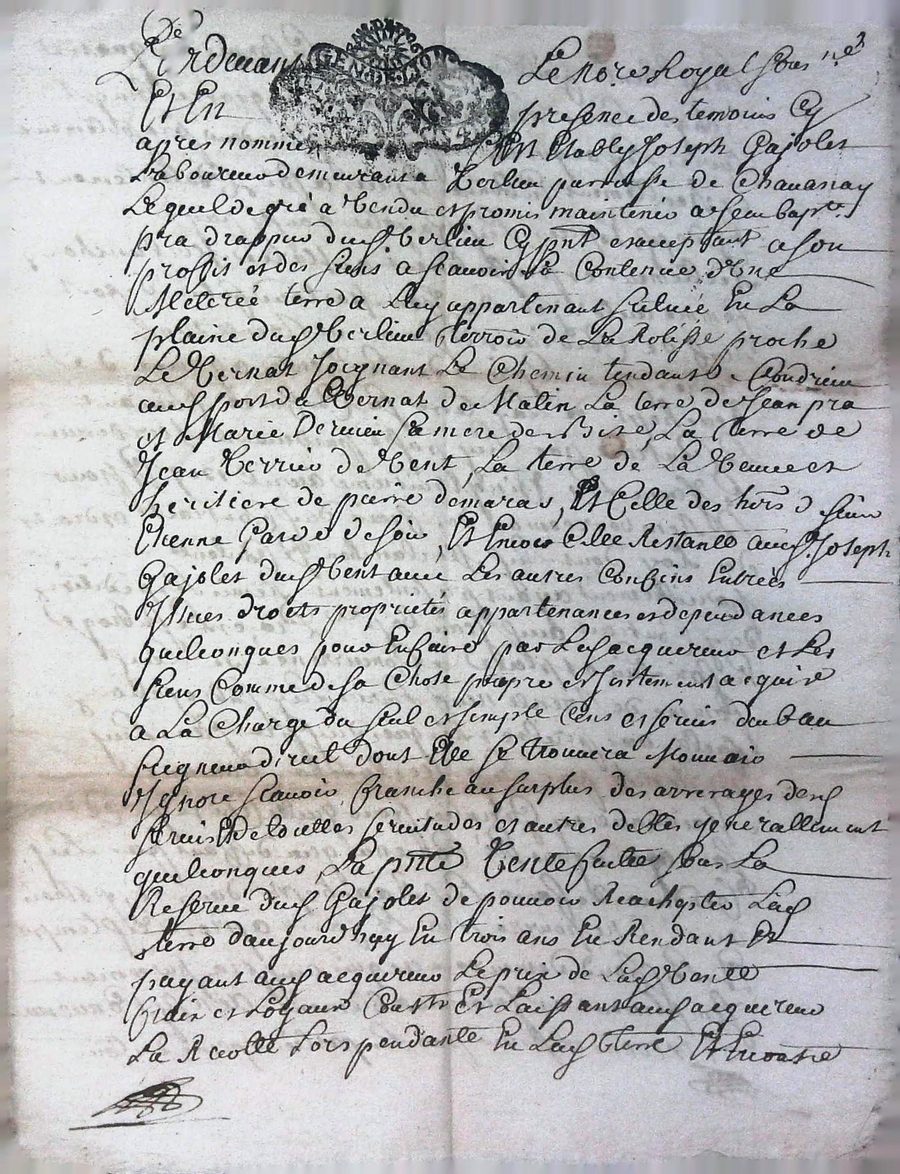 De
Pardevant Le no.re Royal sous ne
Et En presence des temoins Cy
apres nommes Est Etably Joseph Gajolet
Laboureur demeurant a Verlieu parroisse de Chavanay
Lequel de gré a Vendu et promis maintenir a Jean bap.te
pra drappier dud. Verlieu Cy pnt et acceptant a son
proffit et des siens a scavoir La Contenue d'Une
Meterée terre a Luy appartenant scituée En La
plaine dud. Verlieu terroir de La Rolisse proche
Le Vernat Joignant Le Chemin tendant Condrieu
aud. port du Vernat de Matin La terre de Jean pra
et Marie Dervieu sa mere de Bize, La terre de
Jean Verrier de Vent, La terre de La Veuve et
heritiere de pierre demaras, Et Celle des hoirs d
Etienne Garde de soir, Et Encore Celle Restante aud. Joseph
Gajolet dud. Vent avec Les autres Confins Entrées
Issues droits proprietés appartenances et dependances
quelconques pour En faire par Led. acquereur et Les
siens Comme de sa Chose propre et justement acquise
a La Charge du seul et simple Cens et servis du beau
seigneur direct dont Elle se trouvera Mouvoir
Ignore scavoir, franche au surplus des arrerages dud.
servis Et de touttes servitudes et autres debtes generallement
quelconques, La pnte Vente faitte sous La
Reserve dud. Gajolet de pouvoir Rachepter Lad.
terre d'aujourd'huy En trois ans En Rendant Et
payant aud. acquereur Le prix de Lad. Vente
frais et Loyaux Couts Et Laissant aud. acquereur
La Recolte Lors pendante En Lad. terre Et En outre